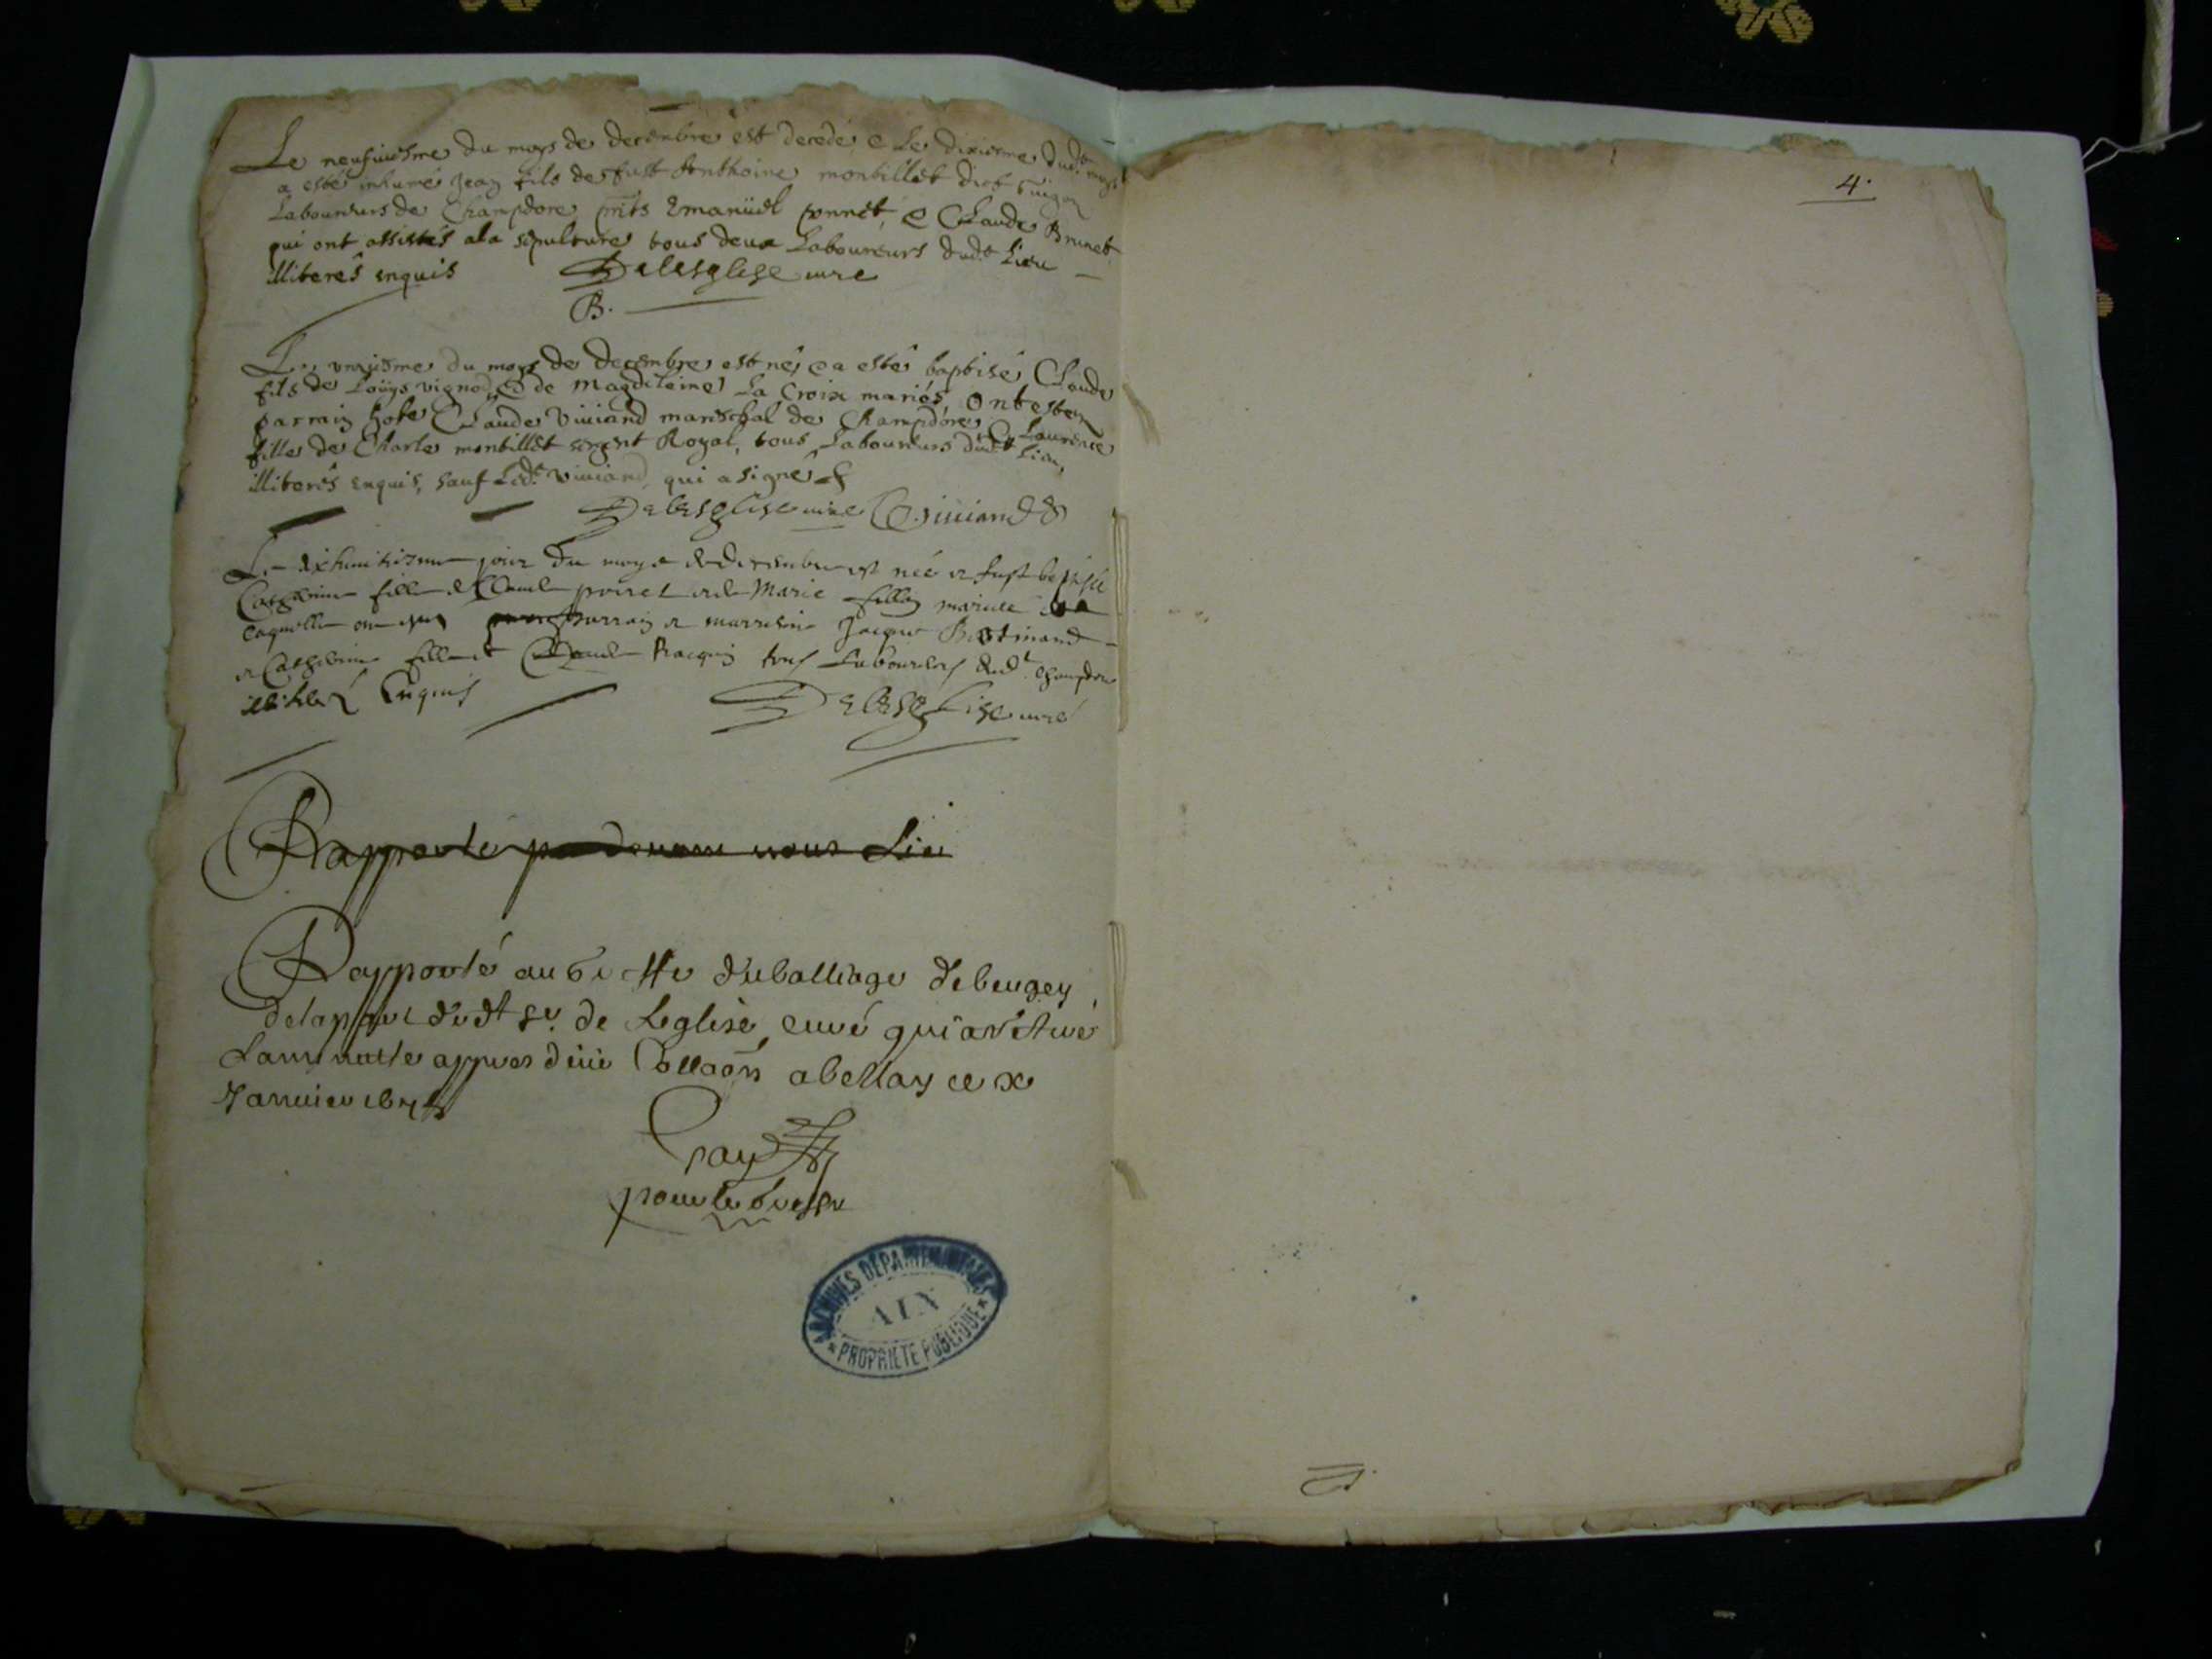 Le neufuiesme du moys de decembre est decedé e Le dixiesme dudt moys
a esté inhumé Jean fils de fust Anthoine montillet dict
Laboureurs de Champdore pnts Emanüel ponnet, e Claude Brunet
qui ont assistés a la sepulture tous deux Laboureurs dudt Lieu
illiterés enquis Delesglise cure
B.
Le unziesme du moys de decembre est né e a esté baptisé Claude
fils de Loüys vignod e de Magdeleine La Croix mariés, ont esté
parrain hote Claude Viuiand mareschal de Champdore, e Laurence
fille de Charle montillet sergent Royal, tous Laboureurs dudt Lieu,
illiterés enquis, sauf Ledt Viuiand qui a signé
Delesglise cure C. Viuiand
Le dixhuitiesme jour du moys de decembre est née et fust baptisée
Catherine fille de Claude poncet et de Marie mariée
laquelle ont parrain et marreine Jacque
et Catherine fille de Claude tous Laboureurs dudt Champdore
Enquis Delesglise curé
Rapporté pardeuant nous Lieu
Rapporté au Greffe du balliage de beugey
de la part dudt Sr. de Leglise curé qui a retiré
La minutte appres deüe Collaon a bellay ce x
Januier
pour le Greffe
ARCHIVES DÉPARTEMENTALES
AIN
PROPRIÉTÉ PUBLIQUE
4.